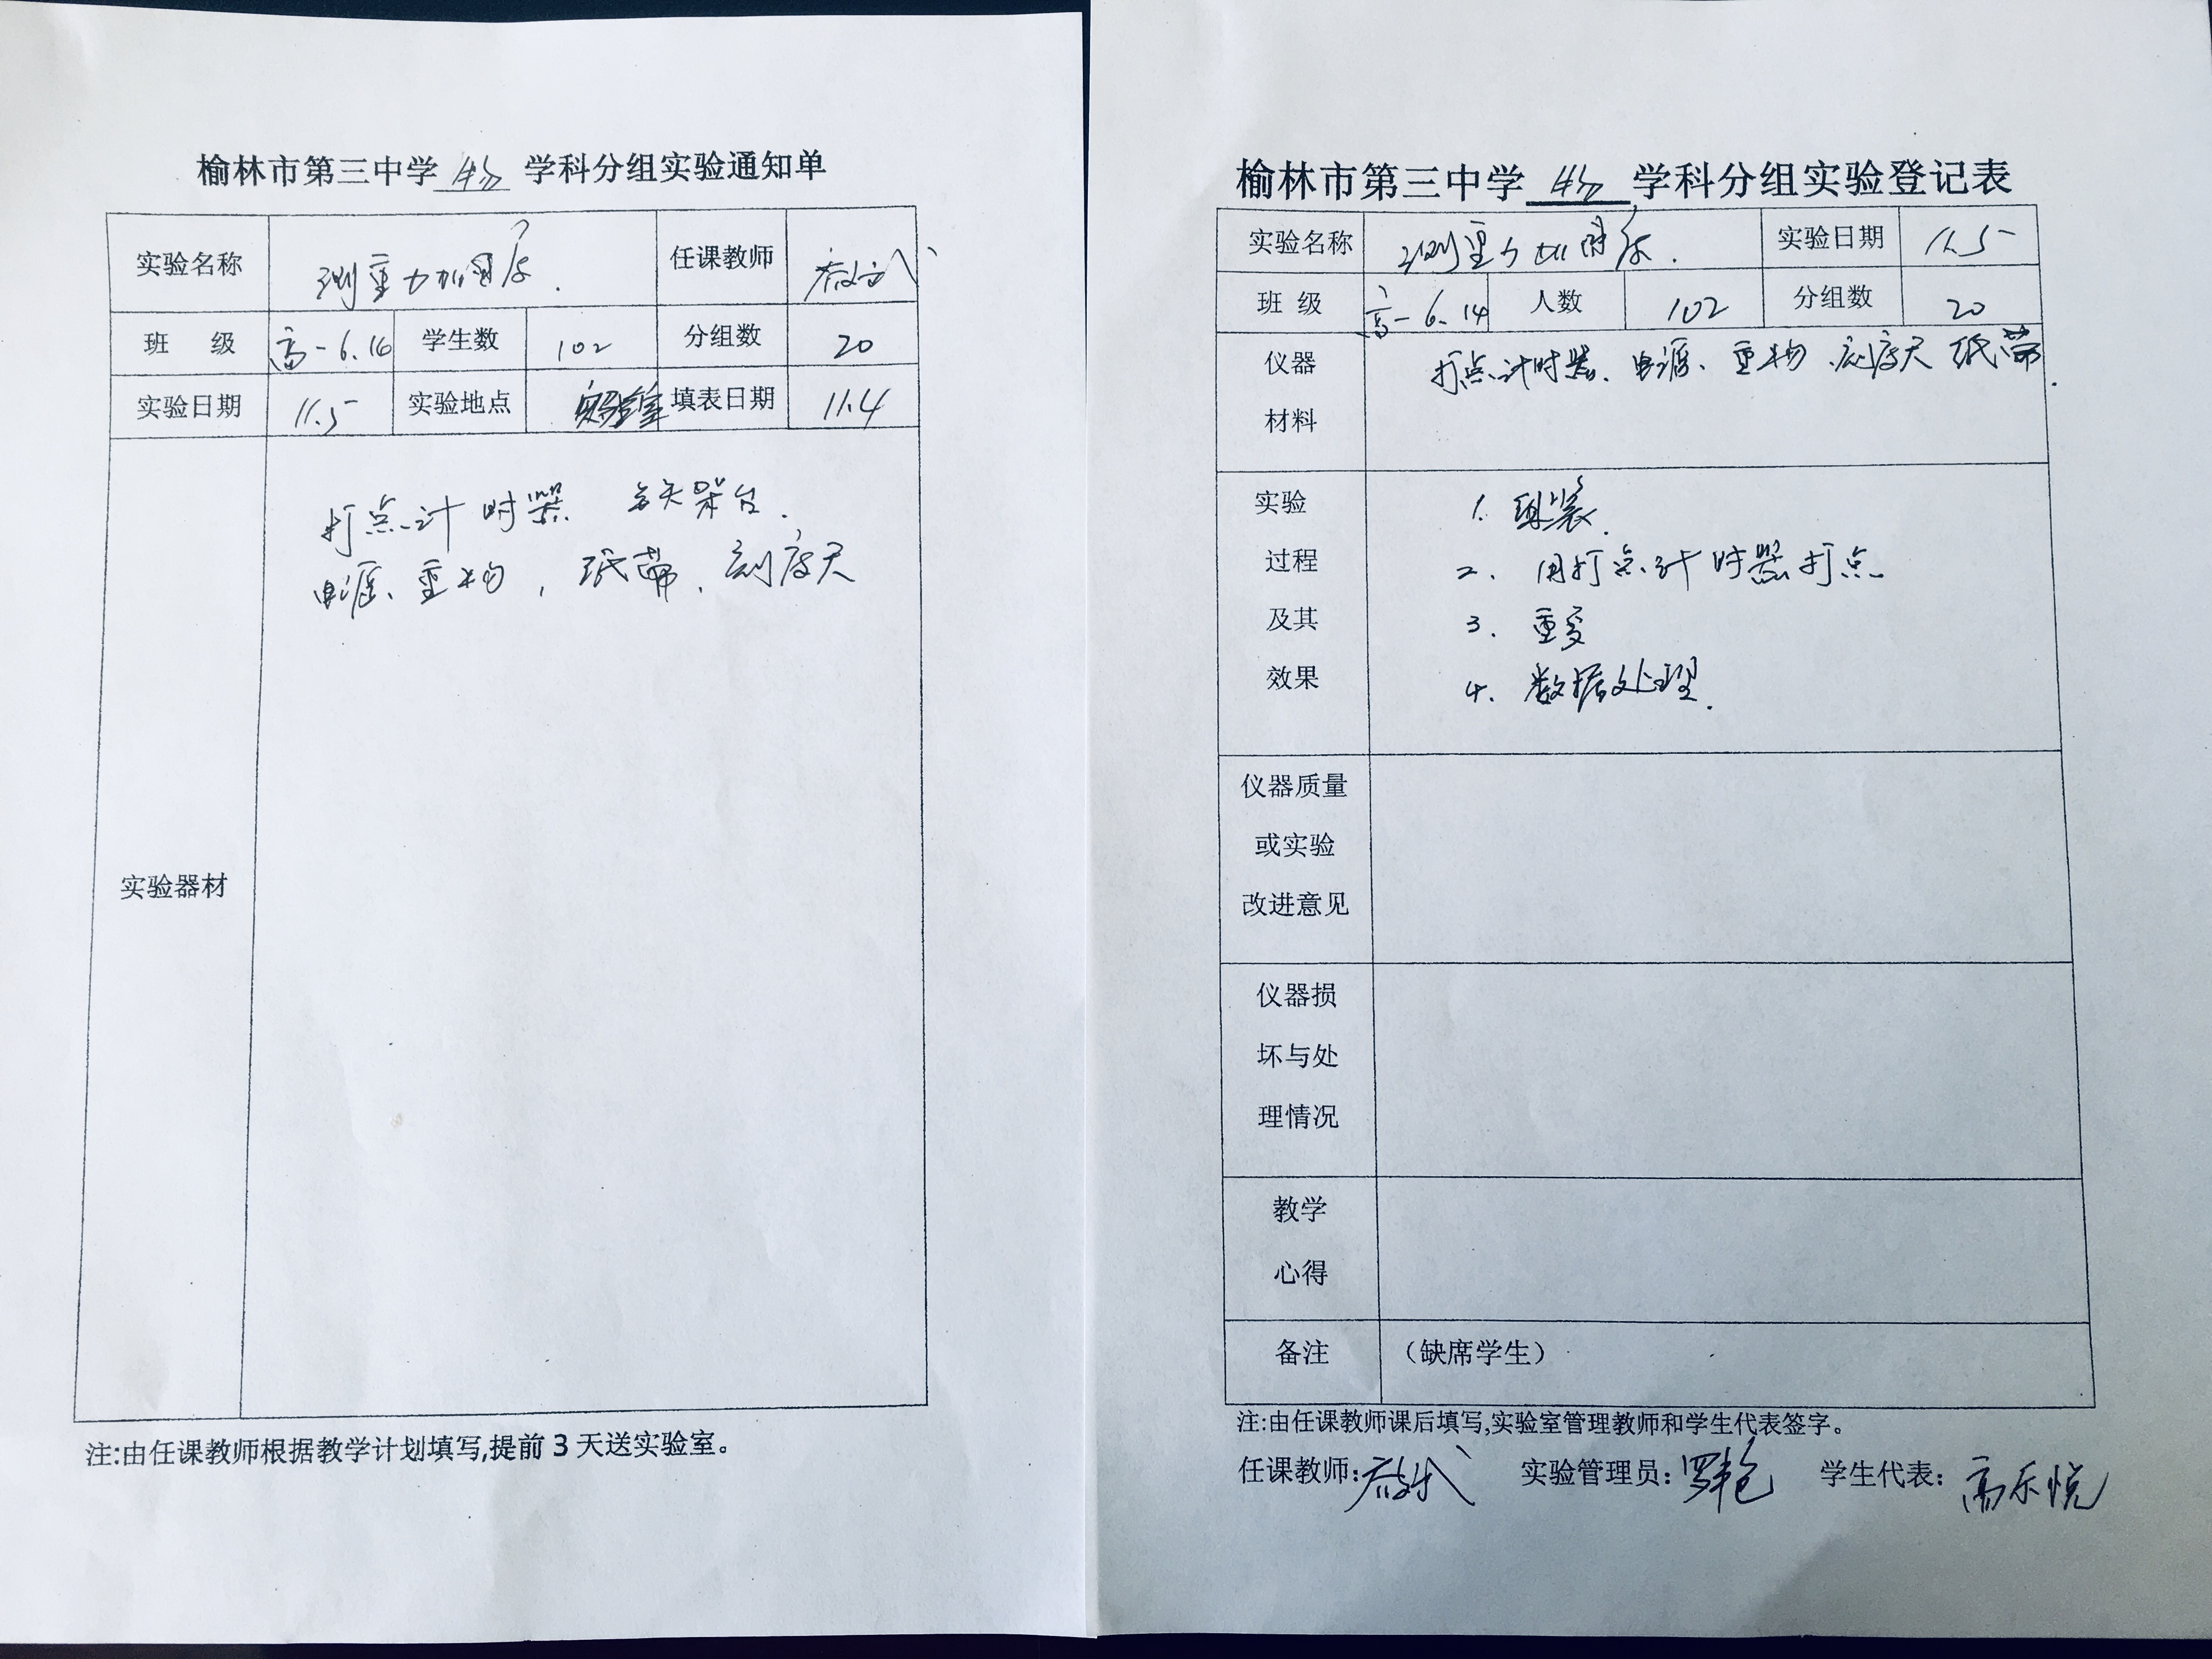 榆林市第三中学 物 学科分组实验通知单
实验名称 测重力加速度. 任课教师
班 级 高一6.16 学生数 102 分组数 20
实验日期 11.5 实验地点 实验室 填表日期 11.4
打点计时器 铁架台.
电源、重物,纸带、刻度尺
实验器材
注:由任课教师根据教学计划填写,提前3天送实验室。
榆林市第三中学 物 学科分组实验登记表
实验名称 测重力加速度. 实验日期 11.5
班 级 高一6.14 人数 102 分组数 20
仪器 打点计时器、电源、重物、刻度尺 纸带.
材料
实验 1. 组装.
过程 2. 用打点计时器打点
及其 3. 重复
效果 4. 数据处理.
仪器质量
或实验
改进意见
仪器损
坏与处
理情况
教学
心得
备注 (缺席学生)
注:由任课教师课后填写,实验室管理教师和学生代表签字。
任课教师: 实验管理员:罗艳 学生代表:高乐悦